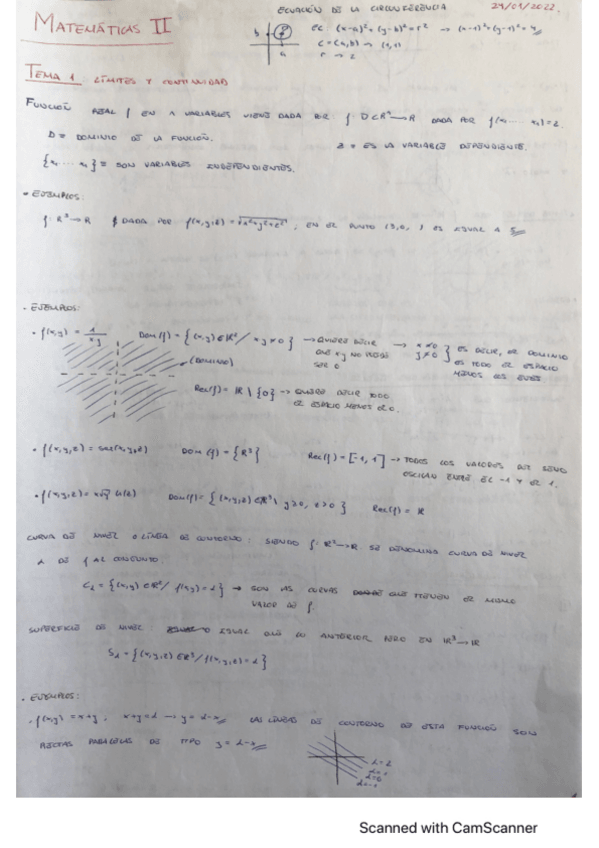 MATEMÁTICAS II
ECUACIÓN DE LA CIRCUNFERENCIA
24/01/2022.
b
a
EC: (x-a)²+(y-b)²=r² → (x-1)²+(y-1)²=4
C=(a,b) → (1,1)
r → 2
TEMA 1 LÍMITES Y CONTINUIDAD
FUNCIÓN REAL f EN n VARIABLES VIENE DADA POR f: D⊂Rⁿ→R DADA POR f(x₁.... xₙ)=z.
D = DOMINIO DE LA FUNCIÓN. z = ES LA VARIABLE DEPENDIENTE.
{x₁.... xₙ} = SON VARIABLES INDEPENDIENTES.
- EJEMPLOS:
f: R³→R DADA POR f(x,y,z)=√x²+y²+z², EN EL PUNTO (3,0, ) ES IGUAL A 5
- EJEMPLOS:
• f(x,y) = 1/xy Dom(f) = {(x,y)∈R²/ xy≠0} → QUIERE DECIR QUE xy NO PUEDE SER 0 → x≠0 y≠0 } ES DECIR, EL DOMINIO ES TODO EL ESPACIO MENOS LOS EJES
(DOMINIO)
Rec(f) = R \ {0} → QUIERE DECIR TODO EL ESPACIO MENOS EL 0.
• f(x,y,z) = sen(x+y+z) Dom(f) = {R³} Rec(f) = [-1, 1] → TODOS LOS VALORES DEL SENO OSCILAN ENTRE EL -1 Y EL 1.
• f(x,y,z)=x√y ln(z) Dom(f) = {(x,y,z)∈R³\ y≥0, z>0} Rec(f) = R
CURVA DE NIVEL O LÍNEA DE CONTORNO: SIENDO f: R²→R. SE DENOMINA CURVA DE NIVEL
α DE f AL CONJUNTO.
Cα = {(x,y)∈R²/ f(x,y)=α} → SON LAS CURVAS QUE TIENEN EL MISMO VALOR DE f.
SUPERFICIE DE NIVEL: IGUAL QUE LO ANTERIOR PERO EN R³→R
Sα = {(x,y,z)∈R³/f(x,y,z)=α}
- EJEMPLOS:
• f(x,y) = x+y, x+y=α → y=α-x LAS LÍNEAS DE CONTORNO DE ESTA FUNCIÓN SON
RECTAS PARALELAS DE TIPO y=α-x
α=2
α=1
α=0
α=-1
Scanned with CamScanner